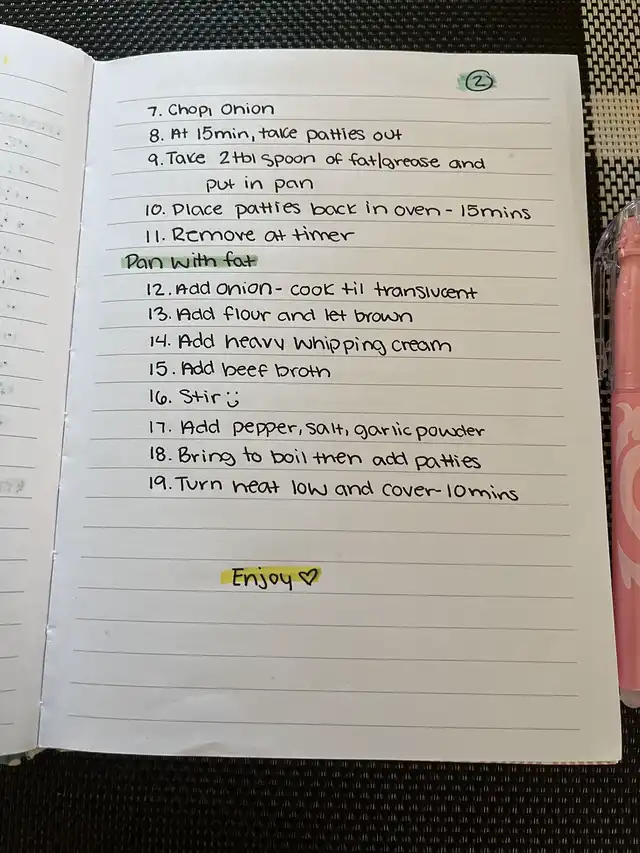 2
7. Chop 1 onion
8. At 15min, take patties out
9. Take 2tbl spoon of fat/grease and
put in pan
10. Place patties back in oven - 15mins
11. Remove at timer
Pan with fat
12. Add onion - cook til translucent
13. Add flour and let brown
14. Add heavy whipping cream
15. Add beef broth
16. Stir :)
17. Add pepper, salt, garlic powder
18. Bring to boil then add patties
19. Turn heat low and cover - 10mins
Enjoy ♡